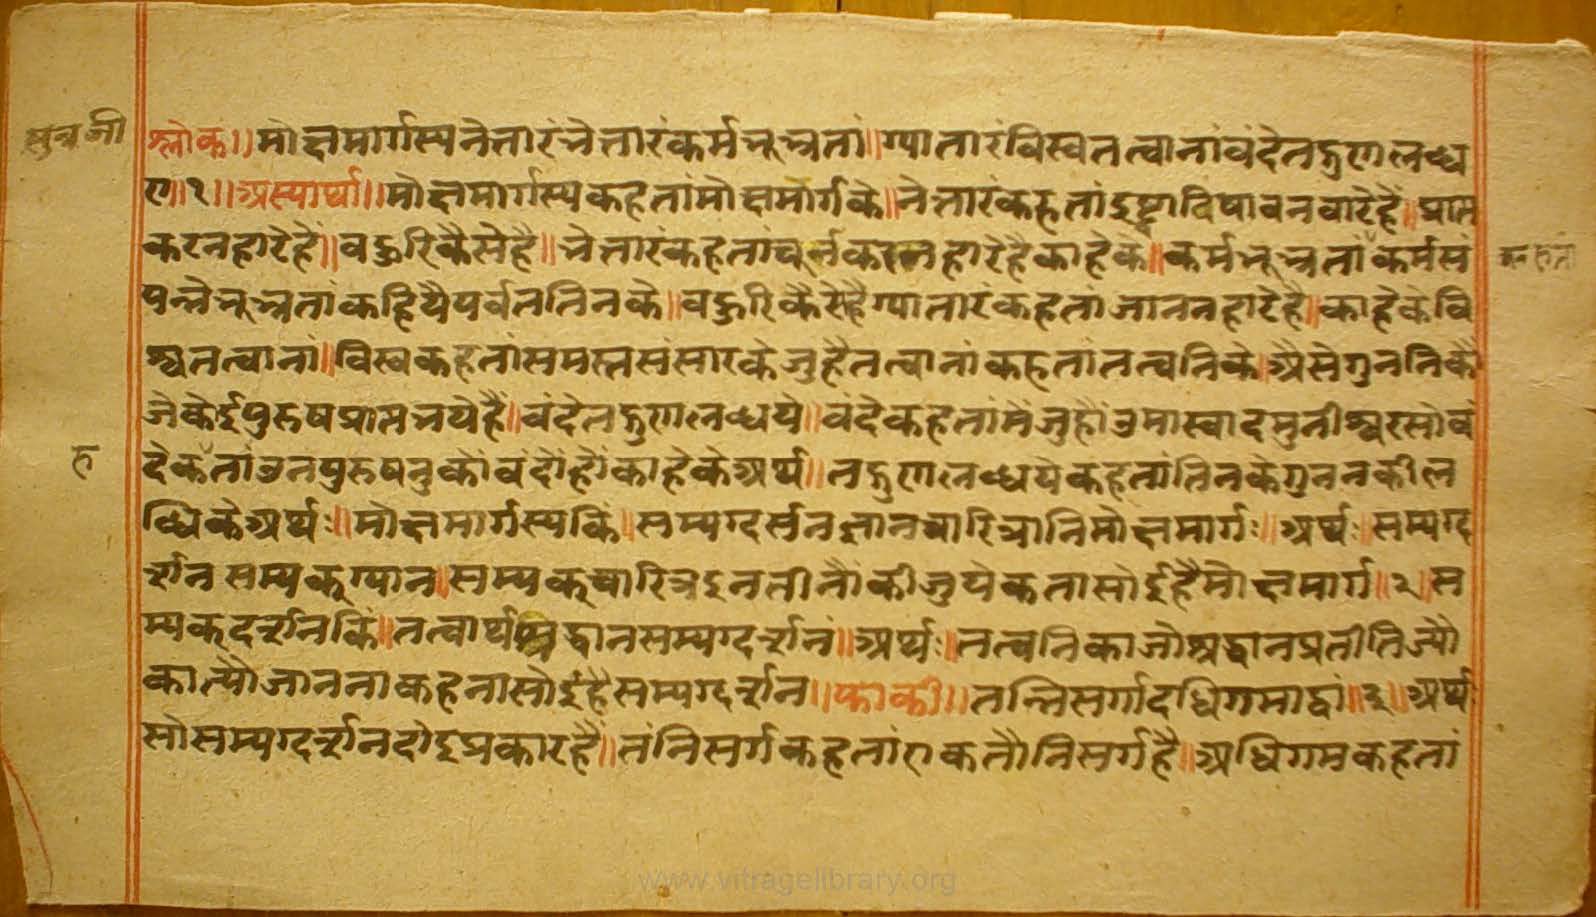 सुत्रजी
श्लोक॥मोक्षमार्गस्यनेत्तारंभेत्तारंकर्मभूभृतां॥ग्यातारंविस्वतत्वानांवंदेतद्गुणलब्ध
ए॥१॥अस्यार्थ॥मोक्षमार्गस्यकहतांमोक्षमार्गके॥नेत्तारंकहतांइष्टादिपावनवारेहैं॥प्राप्त
करनहारेहैं॥बहुरिकैसेहै॥भेत्तारंकहतांचूर्नकरनहारेहैकाहेके॥कर्मभूभृतांकर्मसं
कहतां
पन्नेभूभृतांकहियैपर्वततिनके॥बहुरिकैसेहैग्यातारंकहतांजाननहारेहै॥काहेकेवि
श्वतत्वानां॥विस्वकहतांसमस्तसंसारकेजुहैतत्वानांकहतांतत्वनिके॥अैसेगुनतिकै
जेकेईपुरुषप्राप्तभयेहै॥वंदेतद्गुणलब्धये॥वंदेकहतांमैंजुहौंउमास्वादमुनीश्वरसोवं
ह
देकतांउनपुरुषनुकोंवंदोंहोंकाहेकेअर्थ॥तद्गुणलब्धयेकहतांतिनकेगुननकील
ब्धिकेअर्थः॥मोक्षमार्गस्यकिं॥सम्यग्दर्सनज्ञानचारित्रानिमोक्षमार्गः॥अर्थः॥सम्यग्द
र्शनसम्यक्ग्यान॥सम्यक्चारित्रइनतीनौंकीजुयेकतासोईहैमोक्षमार्ग॥२॥स
म्यक्दर्शनकिं॥तत्वार्थश्रद्धानसम्यग्दर्शनं॥अर्थः॥तत्वनिकाजोश्रद्धानप्रतीतिज्यौ
कात्यौजाननाकहनासोईहैसम्यग्दर्शन॥फाकी॥तन्निसर्गादधिगमाद्वा॥३॥अर्थ
सोसम्यग्दर्शनदोइप्रकारहैं॥तंनिसर्गकहतांएकतौनिसर्गहै॥अधिगमकहतां
www.vitragelibrary.org